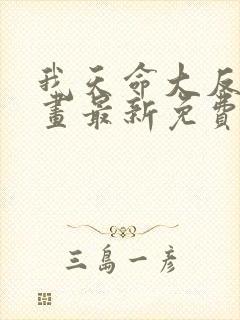 我天命大反
畫最新免費
三島一彥